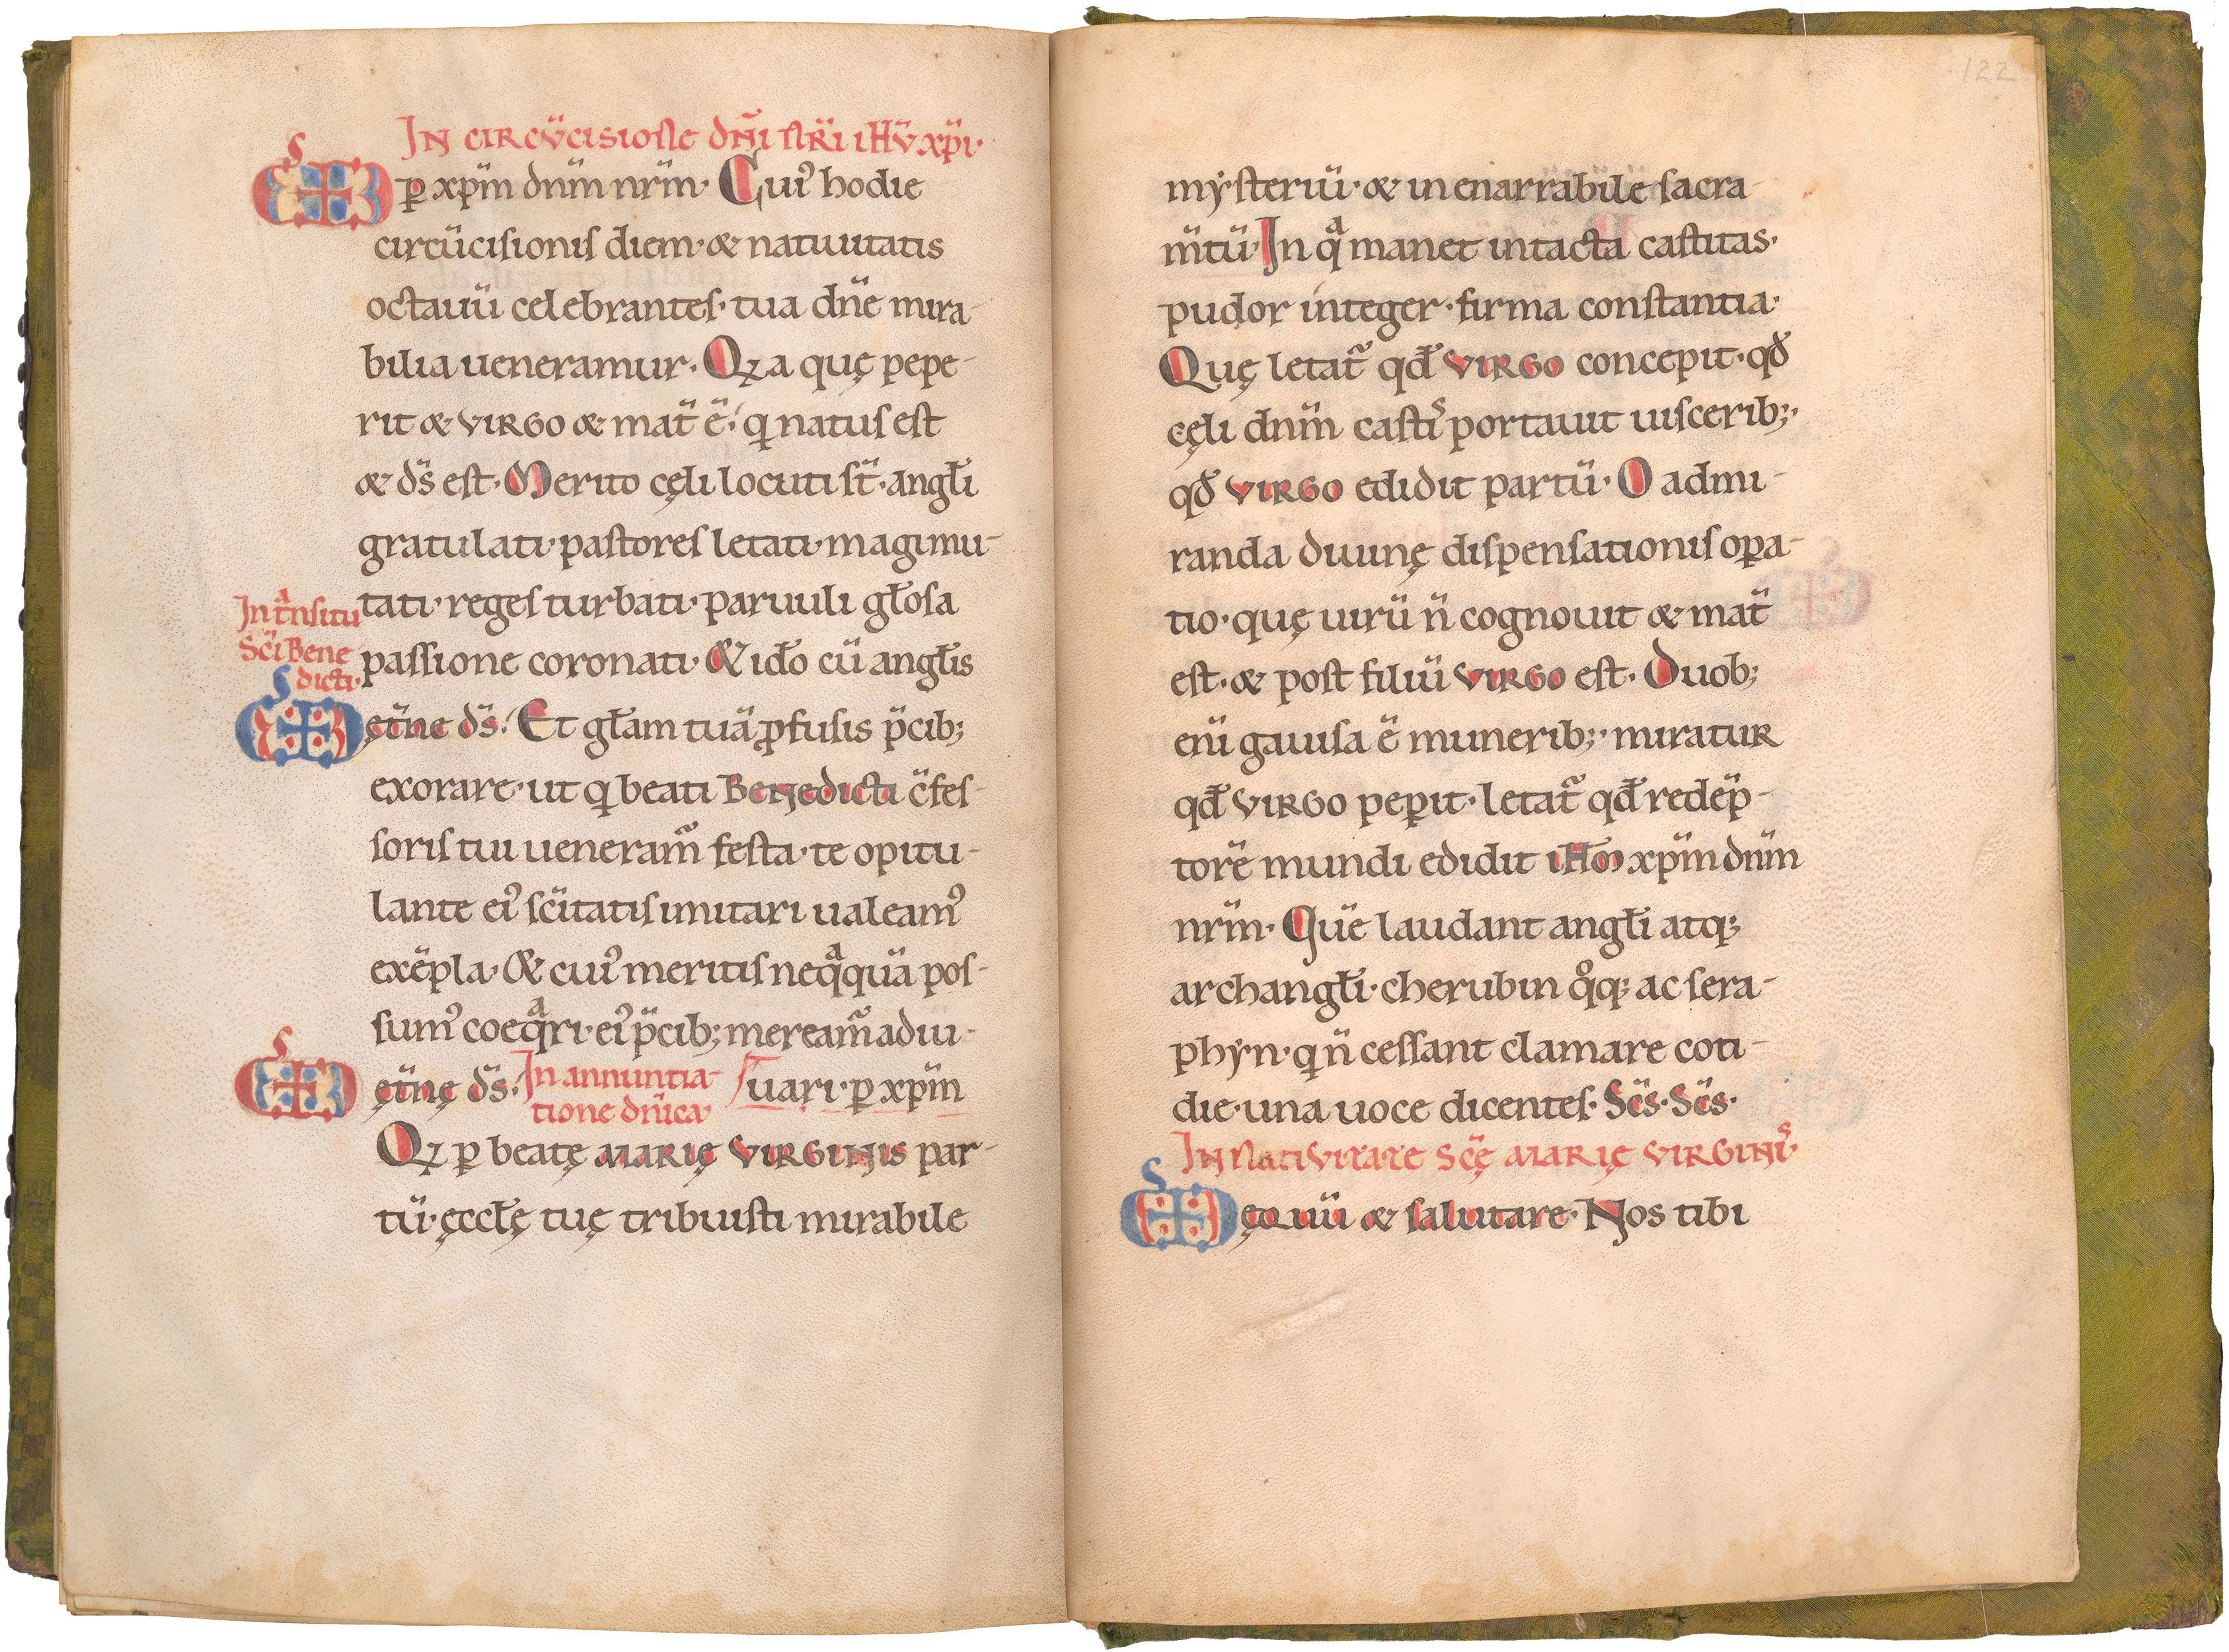 In circūcisione dn̄i nr̄i iħū xp̄i·
ꝑ xp̄m dn̄m nr̄m· Cuiꝰ hodie
circūcisionis diem· & natiuitatis
octauū celebrantes· tua dn̄e mira-
bilia ueneramur. Qꝫa quę pepe-
rit & virgo & mat̄ ē· q natus est
& ds̄ est· Merito cęli locuti st̄· angłi
gratulati· pastores letati· magi mu-
tati· reges turbati· paruuli głosa
passione coronati· & iđo cū angłis
In tᵃnsitu
Sc̄i Bene
dicti·
ęt̄ne ds̄· Et głam tuā ꝓfusis p̄cib;
exorare· ut q beati Benedicti c̄fes-
soris tui ueneram̃ festa· te opitu-
lante eiꝰ sc̄itatis imitari ualeamꝰ
exēpla· & cuiꝰ meritis neqᵃquā pos-
sumꝰ coeqᵃri· eiꝰ p̄cib; meream̃ adiu-
uari· ꝑ xp̄m
In annuntia-
tione dn̄ica·
ęt̄nę ds̄·
Qꝫ ꝑ beatę Marię Virginis par-
tū· ęccłę tuę tribuisti mirabile
122
mẏsteriū· & in enarrabile sacra
m̄tū· In qᵃ manet intacta castitas·
pudor integer· firma constantia·
Quę letat̃ qđ virgo concepit· qđ
cęli dn̄m castiˢ portauit uiscerib;·
qđ virgo edidit partū· O admi-
randa diuinę dispensationis oꝑa-
tio· quę uirū n̄ cognouit & mat̄
est· & post filiū virgo est· Duob;
eni̅ gauisa ē munerib;· miratur
qđ virgo peꝑit· letat̃ qđ redēp-
torē mundi edidit iħm xp̄m dn̄m
nr̄m· Quē laudant angłi atq;
archangłi· cherubin qͦq; ac sera-
phẏn· q n̄ cessant clamare coti-
die· una uoce dicentes· Sc̄s· Sc̄s·
In nativitate Sc̄ę Marię Virginiˢ·
ęquū & salutare· Nos tibi